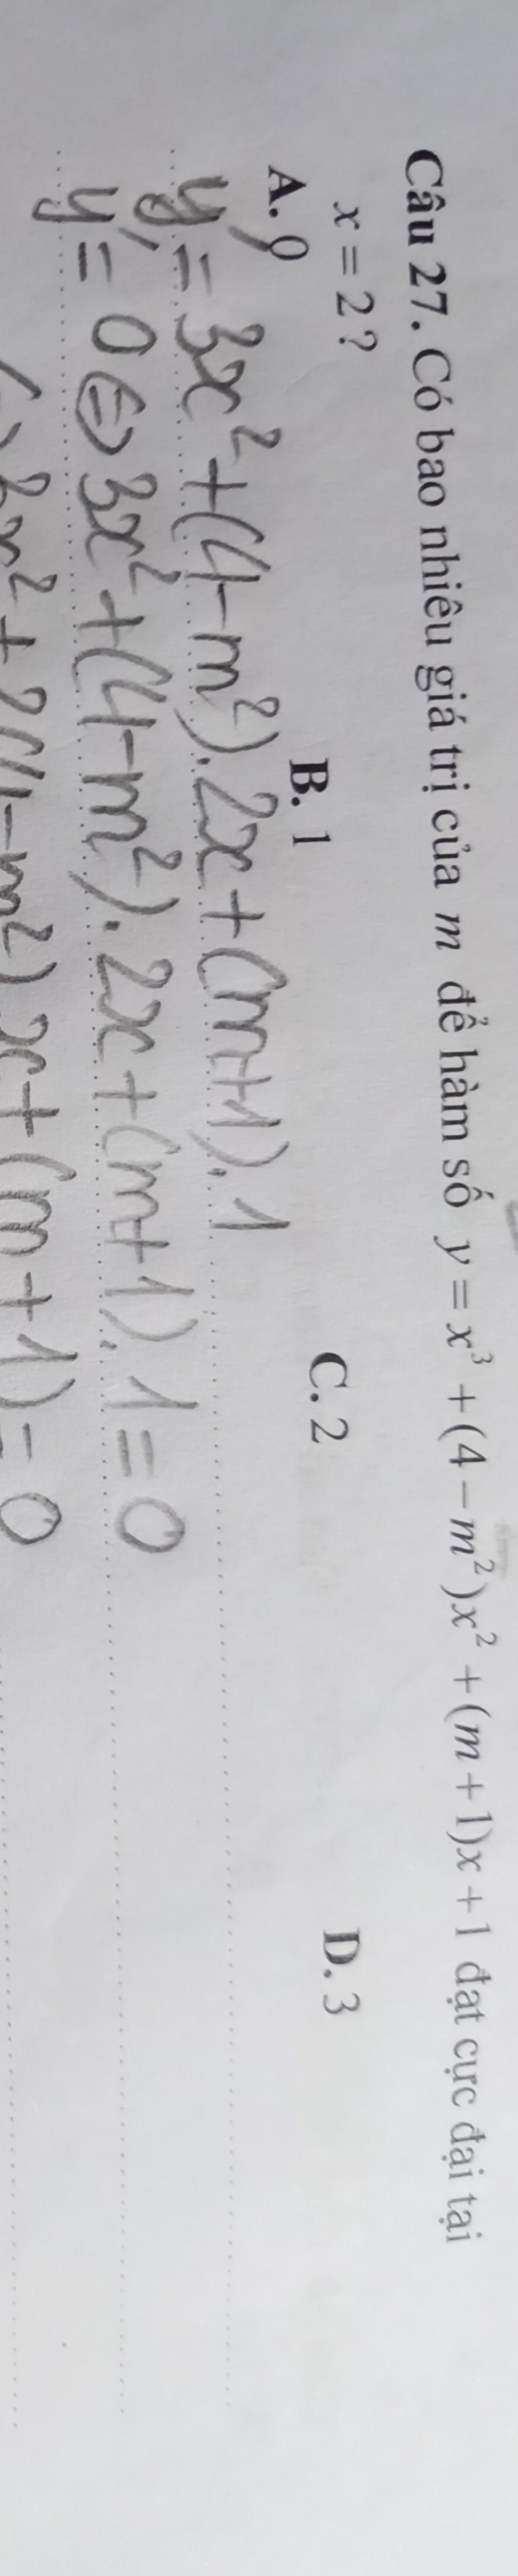 Câu 27. Có bao nhiêu giá trị của m để hàm số y = x³ + (4 − m²)x² + (m + 1)x + 1 đạt cực đại tại
x = 2 ?
A. 0 B. 1 C. 2 D. 3
y' = 3x² + (4 − m²). 2x + (m+1). 1
y' = 0 ⇔ 3x² + (4 − m²). 2x + (m+1). 1 = 0
⇔ 3x² + 2(4 − m²) x + (m + 1) = 0